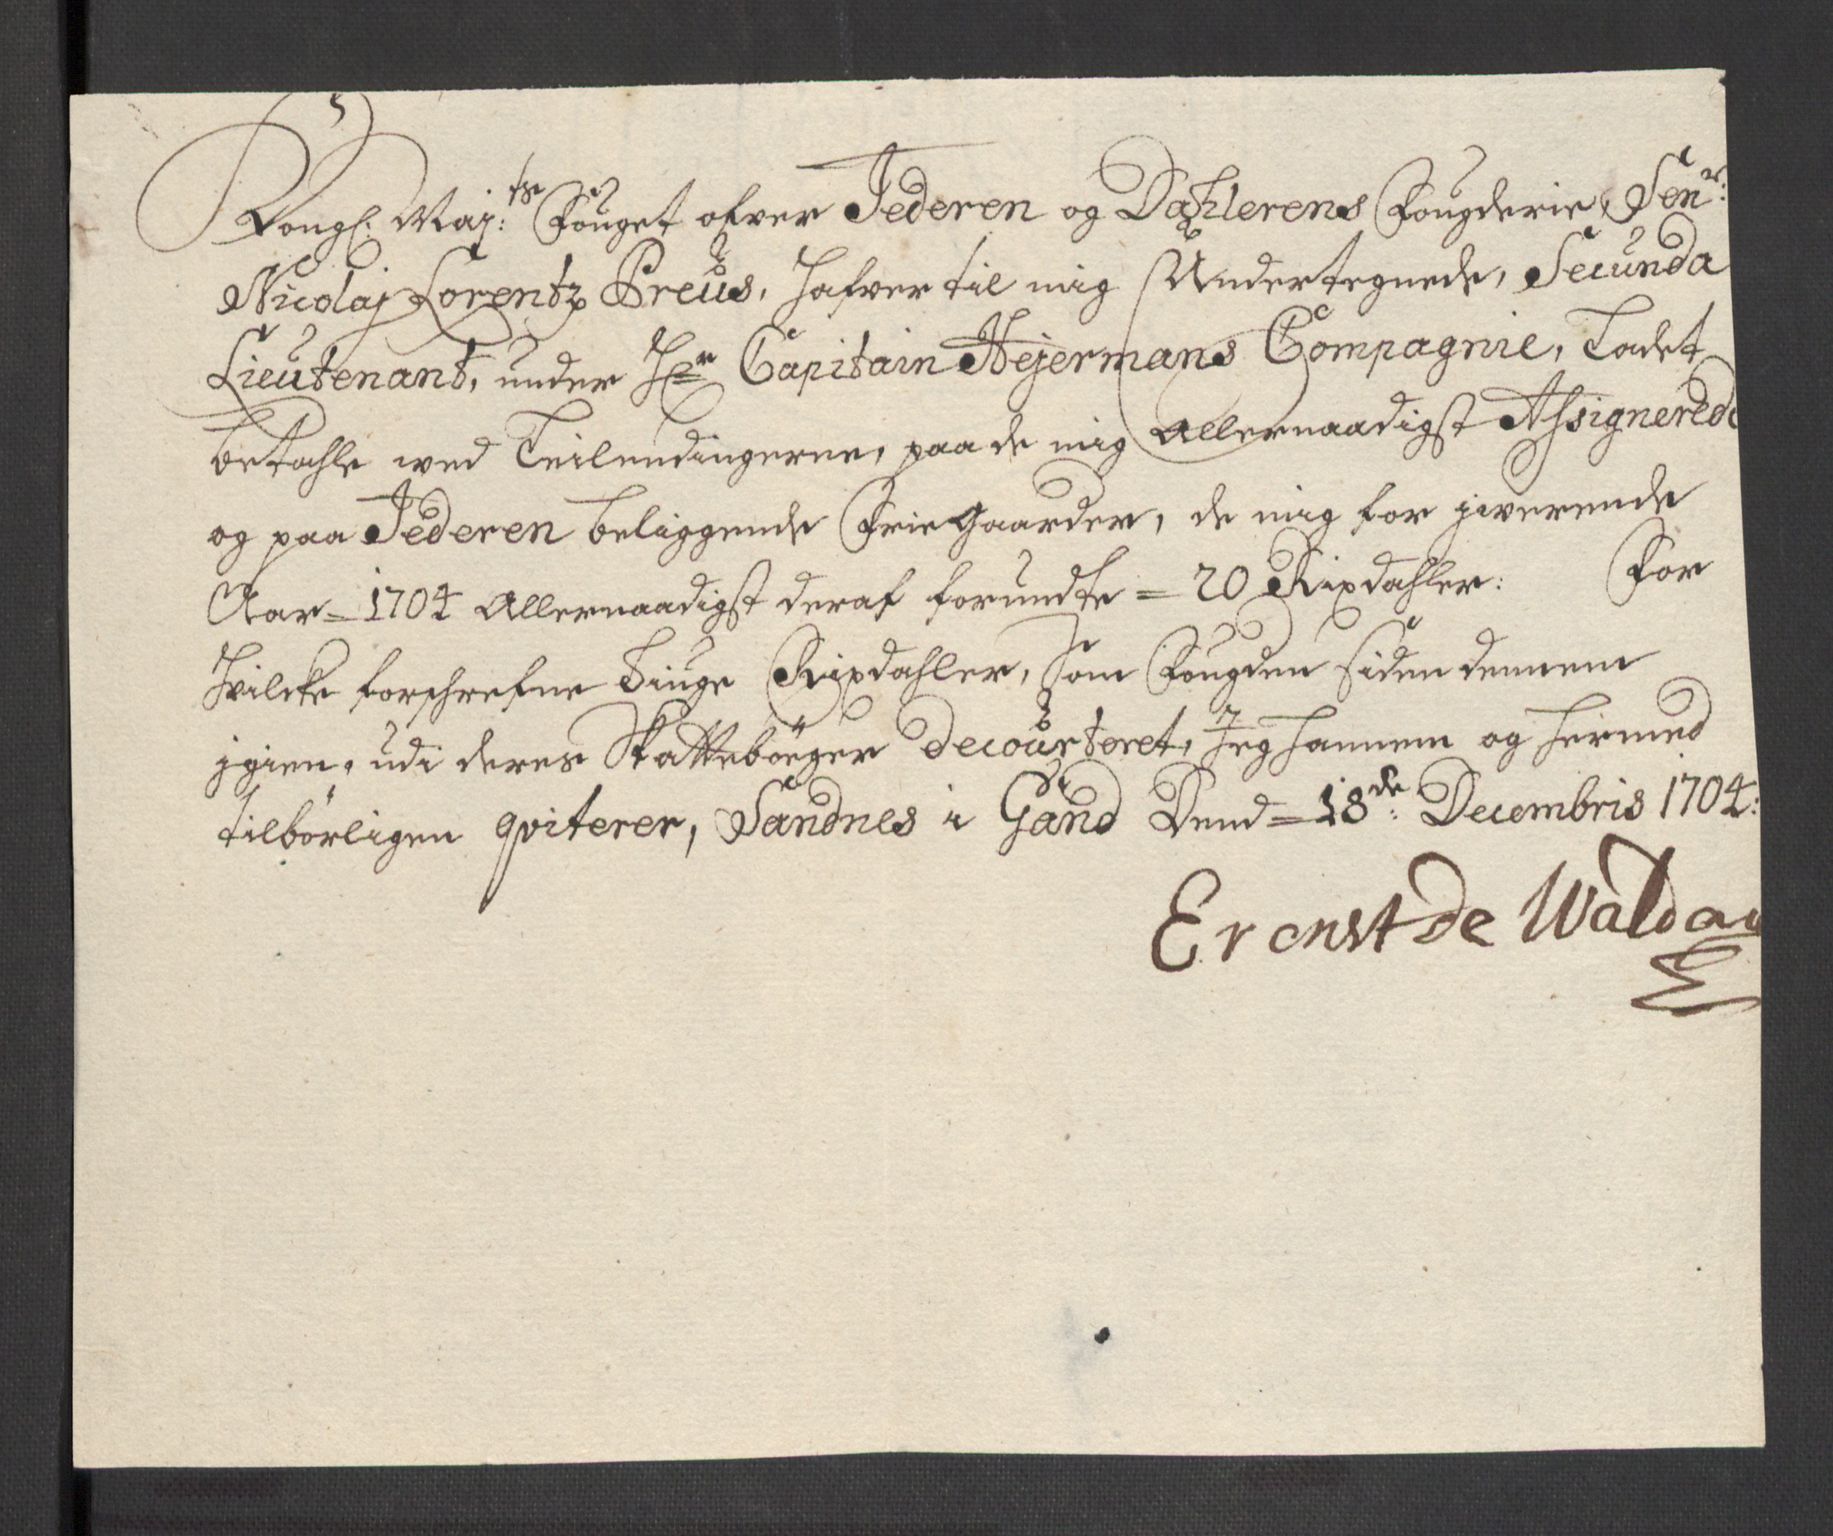 Kongl. Maj:ts Fouget ofver Jederen og Dahlerens Fougderie, Sen:r
Nicolaj Lorentz Preus, hafver til mig Undertegnede, Secunda
Lieutenant, under Hr Capitain Hejermans Compagnie, Ladet
betahle ved Leilendingerne, paa de mig Allernaadigst Assignerede
og paa Jederen beliggende Frie Gaarder, de mig for jverende
Aar = 1704 Allernaadigst deraf forundte = 20 Rixdahler: For
Hvilcke forschrefne Tiuge Rixdahler, som Fougden siden dennem
jgien, udi deres Skattebøger decourteret, Jeg hannem og hermed
tilbørligen qviterer, Sandnes i Gand Dend = 18de: Decembris 1704:
Erenst de Waldau